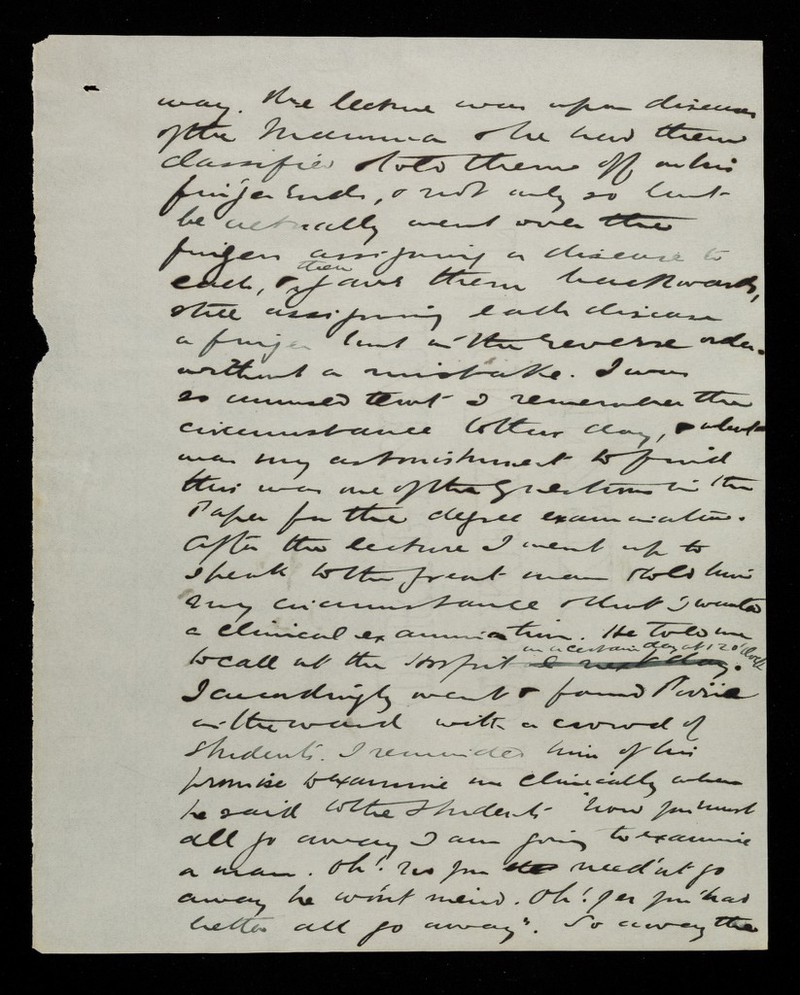 way. The lecture was upon diseases
of the Mamma & he had them
classified & told them off on his
finger ends, & not only so but
he actually went over the
fingers assigning a disease to
each, & then gave them backwards,
still assigning each disease
a finger but in the reverse order
without a mistake. I was
so amused that I remember the
circumstance to this day, & what
was my astonishment to find
this was one of the Questions in the
Paper for the degree examination.
After the lecture I went up to
speak to the great man & told him
my circumstance & that I wanted
a clinical examination. He told me
to call at the Hospital on a certain day at 12 o'clock.
I accordingly went & found Pirrie
in the ward with a crowd of
Students. I reminded him of his
promise to examine me clinically when
he said to the Students "Now you must
all go away I am going to examine
a man. Oh! no you need'nt go
away he wont mind. Oh! yes you had
better all go away". So away the